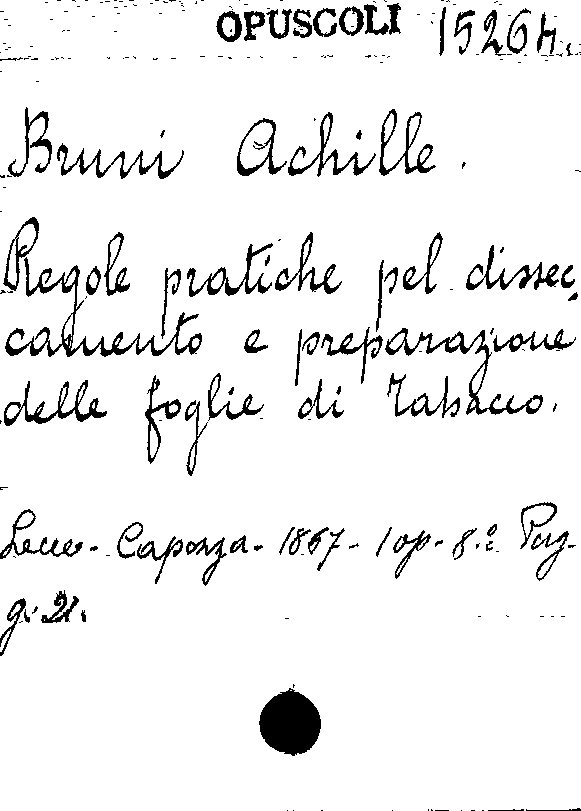 OPUSCOLI 15264.
Bruni Achille.
Regole pratiche pel dissec,
camento e preparazione
delle foglie di Tabacco.
Lecce - Caporza - 1867 - 1 op - 8.º Pag-
gi. 21.